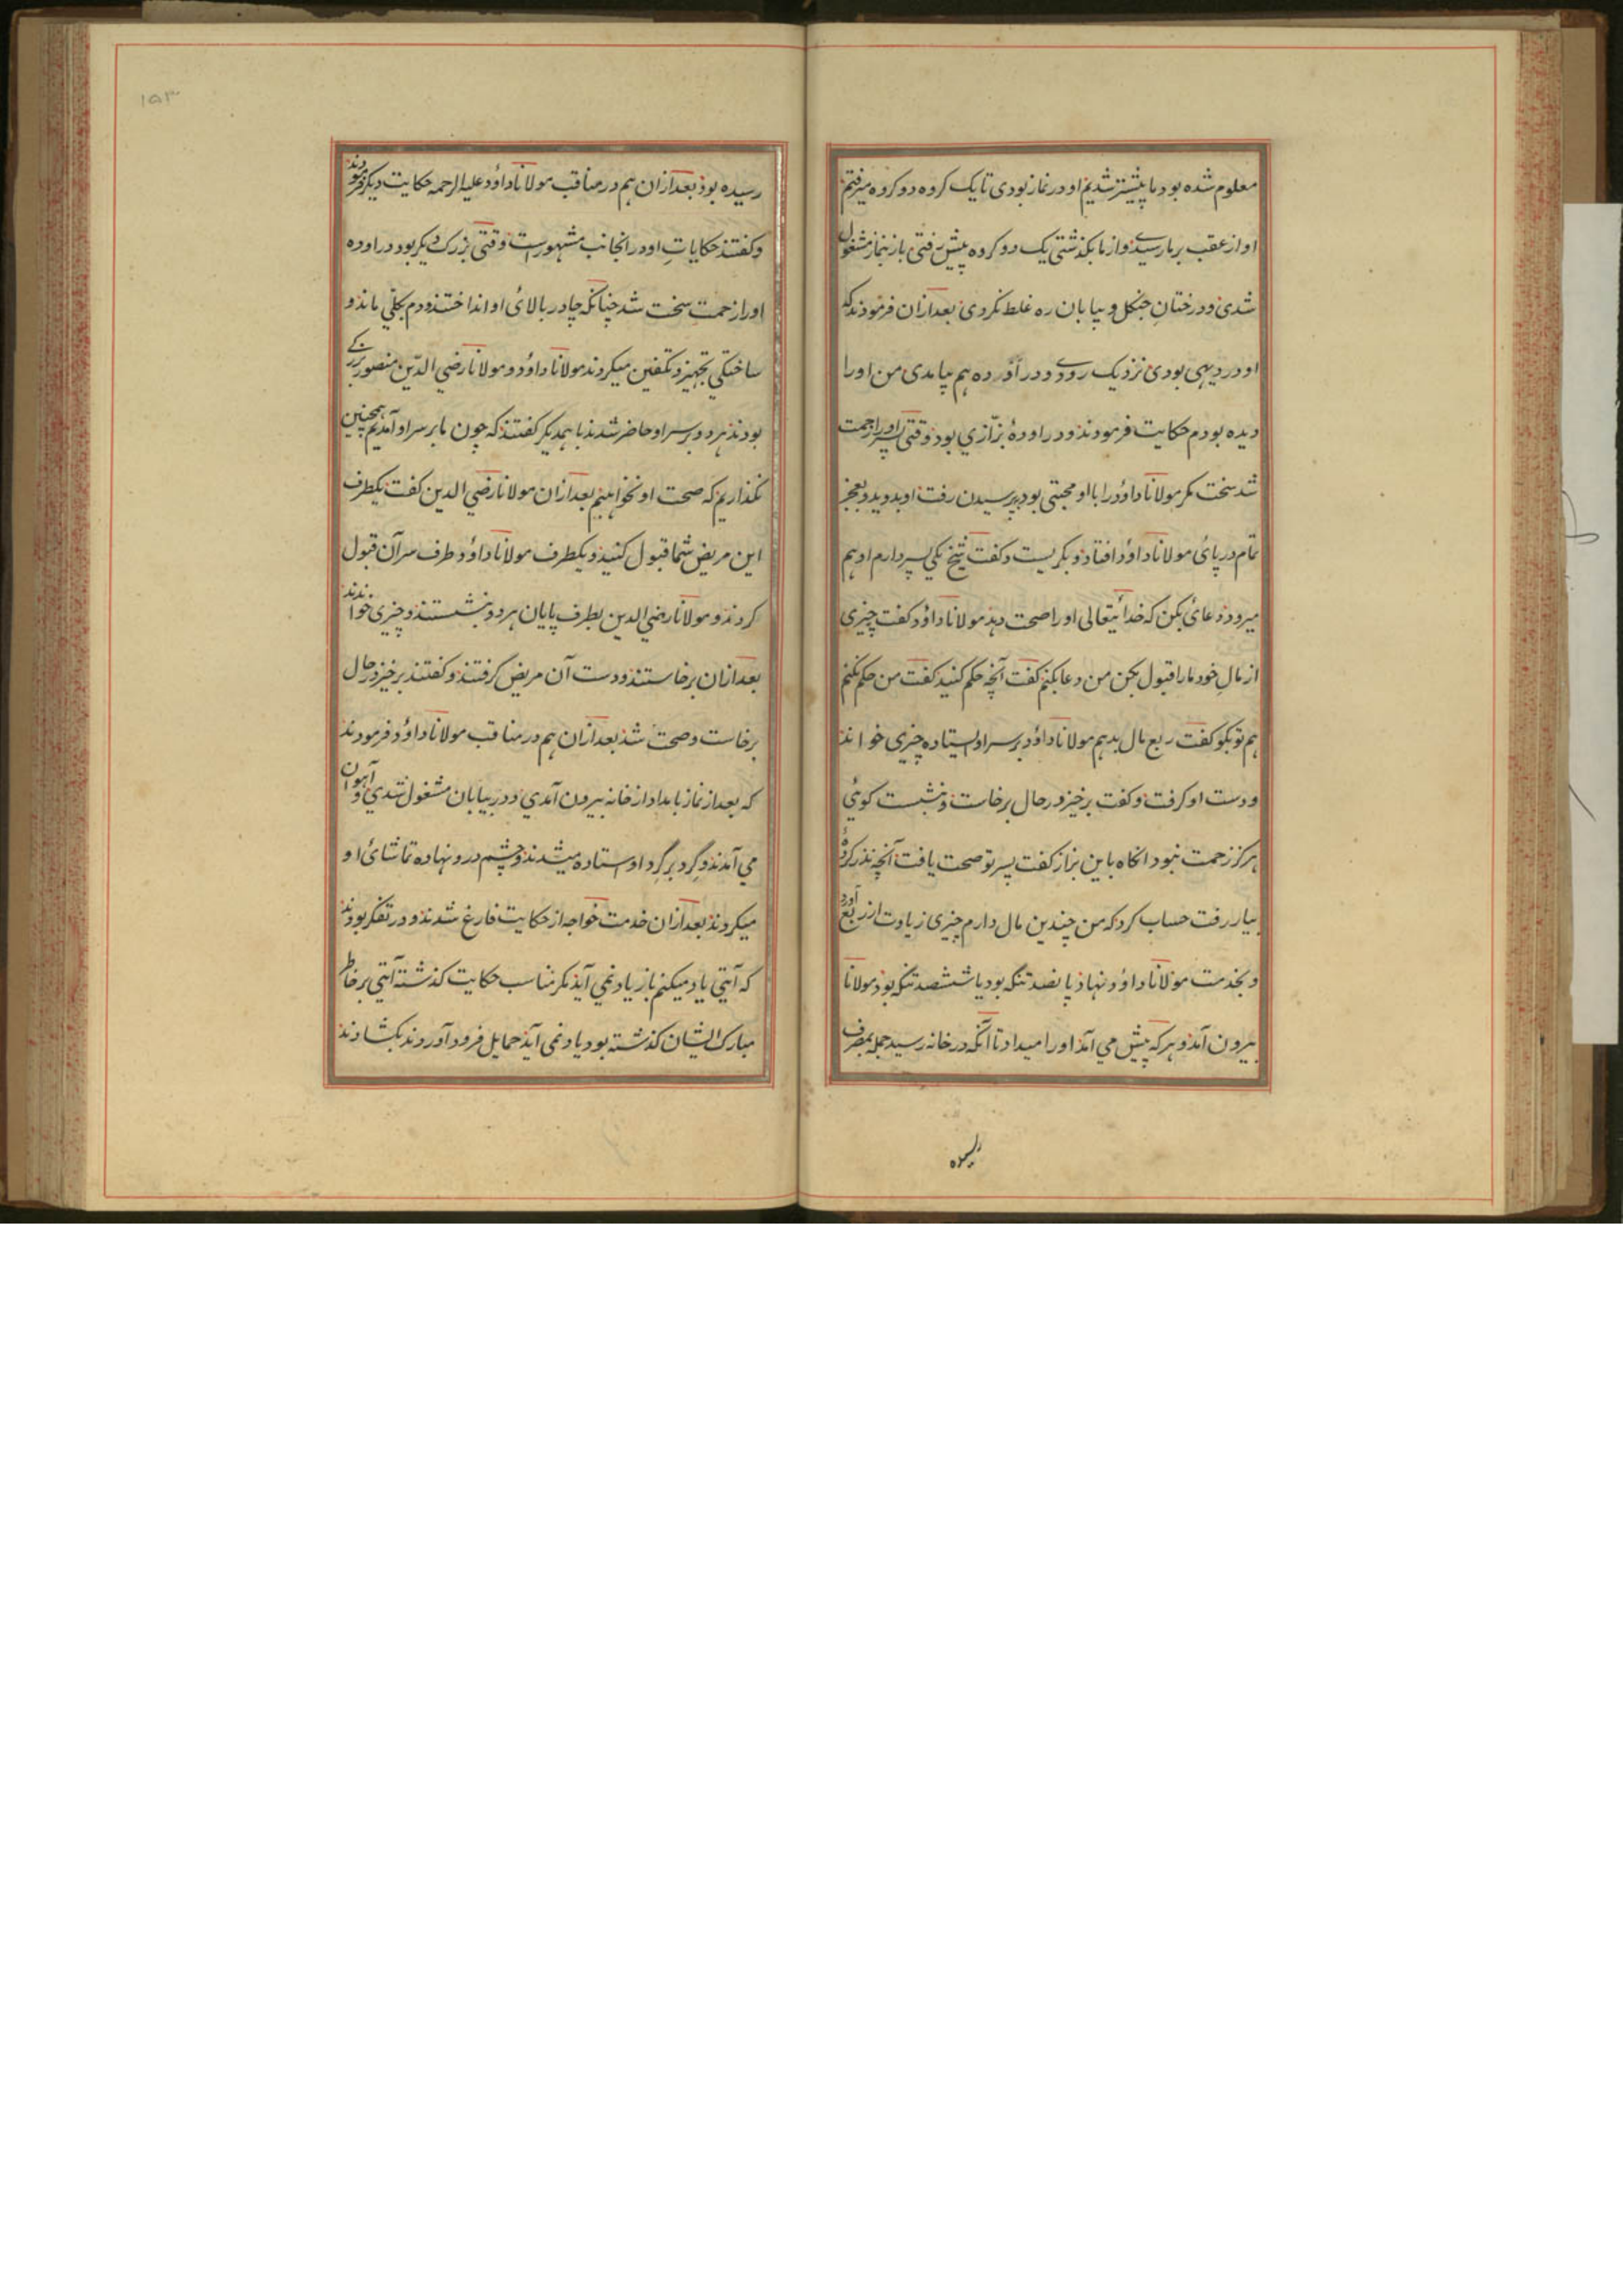 معلوم شده بود ما پیشتر شدیم او در نماز بودی تا یک کروه دو کروه میرفتم
او از عقب بر ما رسیدے و از ما بگذشتی یک دو کروه پیش رفتی باز بنماز مشغول
شدی و درختان جنکل و بیابان ره غلط نکردی بعد ازان فرمودند که
او در دیهی بودی نزدیک رودے و در اوده هم بیامدی من او را
دیده بودم حکایت فرمودند و در اوده بزّازي بود وقتی پسر او را زحمت
شد سخت مگر مولانا داوٗد را با او محبتی بود بپرسیدن رفت او بدوید و بعجز
تمام در پائ مولانا داوٗد افتاد و بگریست و کفت شیخ یکی پسر دارم او هم
میرود دعائ بکن که خدائیتعالی او را صحت دهد مولانا داوٗد کفت چیزی
از مال خود ما را قبول بکن من دعا بکنم کفت آنچه حکم کنید کفت من حکم نکنم
هم تو بکو کفت ربع مال بدهم مولانا داوٗد بر سر او ایستاده چیزی خواند
و دست او کرفت و کفت برخیز در حال برخاست و نشست کوئی
هرکز زحمت نبود انکاه باین بزاز کفت پسر تو صحت یافت آنچه نذر کردهٔ
بیار رفت حساب کرد که من چندین مال دارم چیزی زیادت از ربع آورد
و بخدمت مولانا داوٗد نهاد پانصد تنکه بود یا ششصد تنکه بود مولانا
بیرون آمد و هر که پیش می آمد او را میداد تا آنکه در خانه رسید جمله بمصرف
رسیده
۱۵۳
رسیده بود بعد ازان هم در مناقب مولانا داوٗد علیه الرحمه حکایت دیکر فرمودند
و کفتند حکایات او در انجانب مشهورست وقتی بزرک دیکر بود در اوده
او را زحمت سخت شد چنانکه چادر بالائ او انداختند و دم بکلي ماند و
ساختکي تجهیز و تکفین میکردند مولانا داوٗد و مولانا رضي الدّین منصور بزرکے
بودند هر دو بر سر او حاضر شدند با همدیکر کفتند که چون ما بر سر او آمدیم همچنین
نکذاریم که صحت او نخواهیم بعد ازان مولانا رضي الدین کفت یکطرف
این مریض شما قبول کنید و یکطرف مولانا داوٗد طرف سر آن قبول
کردند و مولانا رضي الدین بطرف پایان هر دو بنشستند و چیزی خواندند
بعد ازان برخاستند و دست آن مریض کرفتند و کفتند برخیز در حال
برخاست و صحت شد بعد ازان هم در مناقب مولانا داوٗد فرمودند
که بعد از نماز بامداد از خانه بیرون آمدي و در بیابان مشغول شدي و آهوان
مي آمدند و کرد بر کرد او ستاده میشدند و چشم درو نهاده تماشائ او
میکردند بعد ازان خدمت خواجه از حکایت فارغ شدند و در تفکر بودند
که آیتي یاد میکنم باز یاد نمي آید مکر مناسب حکایت کذشته آیتي بر خاطر
مبارک ایشان کذشته بود یاد نمی آید حمایل فرود آوردند بکشادند